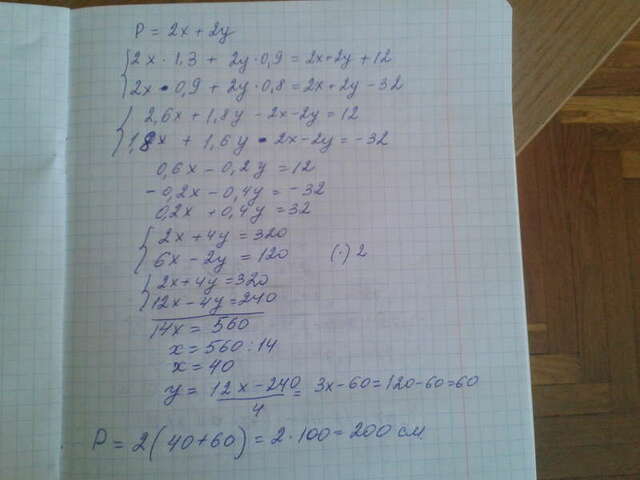 P = 2x + 2y
2x · 1,3 + 2y · 0,9 = 2x + 2y + 12
2x · 0,9 + 2y · 0,8 = 2x + 2y - 32
2,6x + 1,8y - 2x - 2y = 12
1,8x + 1,6y - 2x - 2y = -32
0,6x - 0,2y = 12
-0,2x - 0,4y = -32
0,2x + 0,4y = 32
2x + 4y = 320
6x - 2y = 120 (·) 2
2x + 4y = 320
12x - 4y = 240
14x = 560
x = 560 : 14
x = 40
y = (12x - 240)/4 = 3x - 60 = 120 - 60 = 60
P = 2(40 + 60) = 2 · 100 = 200 см